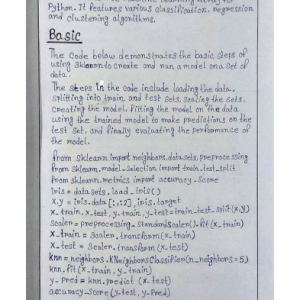 Python. It features various classification, regression
and clustering algorithms.
Basic
The Code below demonstrates the basic steps of
using sklearn to create and run a model on a set of
data.
The steps in the code include loading the data,
splitting into train and test sets, scaling the sets,
creating the model, fitting the model on the data
using the trained model to make predictions on the
test set, and finally evaluating the performance of
the model.
from sklearn import neighbors, datasets, preprocessing
from sklearn.model-selection import train-test-split
from sklearn.metrics import accuracy-score
iris = datasets.load_iris()
x,y = iris.data[:,:2], iris.target
x_train, x_test, y_train, y_test = train-test-split(x,y)
scaler = preprocessing.StandardScaler().fit(x_train)
x_train = scaler.transform(x_train)
x_test = scaler.transform(x_test)
knn = neighbors.KNeighborsClassifier(n_neighbors = 5)
knn.fit(x_train, y_train)
y_pred = knn.predict(x_test)
accuracy_score(y_test, y_pred)